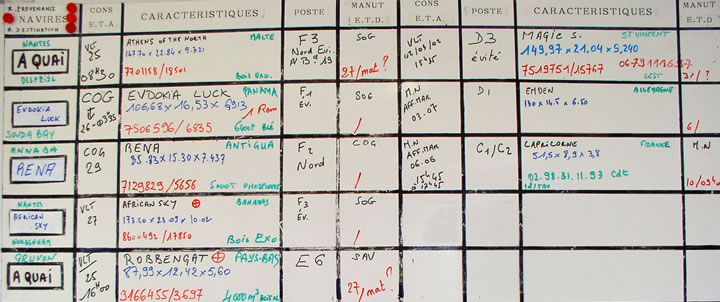 * PROVENANCE
NAVIRES
* DESTINATION
CONS
E.T.A
CARACTERISTIQUES
POSTE
MANUT
E.T.D.
CONS
E.T.A.
POSTE
CARACTERISTIQUES
MANUT
E.T.D
NANTES
A QUAI
VLT
25
08H30
ATHENS OF THE NORTH MALTE
167.70 x 22.84 x 9.321
7701158/18501 BOIS EXO.
F3
Nord Evi.
SOG
27/mat?
VLT
02/08/02
15H45
D3
évité
MAGIC S. ST VINCENT
149,97 x 21,04 x 5,240
7519751/15767
LEST
EVDOKIA
LUCK
SOUDA BAY
COG
EVDOKIA LUCK PANAMA
106,68 x 16,53 x 6,913
7506596/6835
F1
Ev.
SOG
/
M.N
AFF.MAR
03.07
D1
EMDEN ALLEMAGNE
130 x 14.5 x 6.50
6/
ANNABA
RENA
COG
29
RENA ANTIGUA
85.83 x 15.30 x 7.437
7129829/5656 5000T PHOSPHATE
F2
Nord
COG
/
M.N
AFF.MAR
06.06
15H45
C1/C2
CAPRICORNE FRANCE
51,5 x 8,9 x 3,8
02.98.31.11.93 Cdt
M.N
AFRICAN
SKY
NORDENHAM
VLT
27
AFRICAN SKY BAHAMAS
173.50 x 23.09 x 10.02
8600492/17850
BOIS EXO
F3
Év.
SOG
/
A QUAI
VLT
25
16H00
ROBBENGAT PAYS-BAS
87,99 x 12,42 x 5,60
9166455/3697 4000m³ BOIS N.
E6
SAV
27/mat?